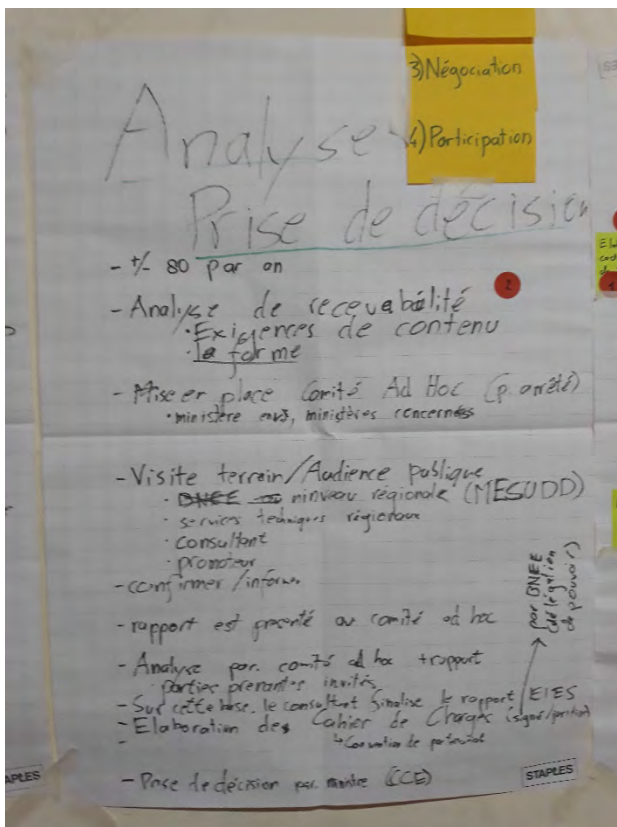 3) Négociation
4) Participation
Analyse
Prise de décision
- +/- 80 par an
- Analyse de recevabilité
2
· Exigences de contenu
· la forme
- Mise en place Comité Ad Hoc (p. arrêté)
· ministère env., ministères concernées
- Visite terrain/Audience publique
· DNEE ninveau régionale (MESUDD)
· services techniques régionaux
· consultant
· promoteur
- confirmer / informer
- rapport est présenté au comité ad hoc
par DNEE
(délégation
de pouvoir)
- Analyse par. comité ad hoc + rapport
· parties prenantes invités
- Sur cette base, le consultant finalise le rapport EIES
- Elaboration des Cahier de Charges
↳ Convention de
- Prise de décision par. ministre (CCE)
STAPLES
APLES